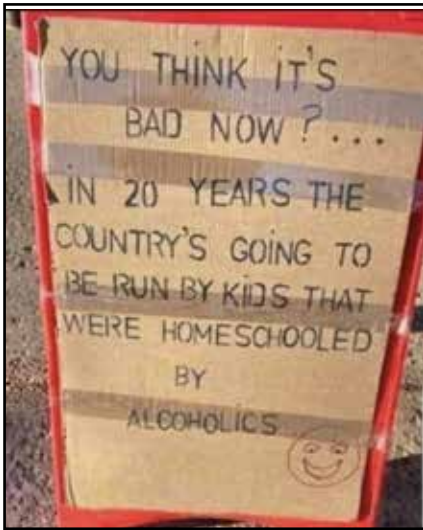 YOU THINK IT'S
BAD NOW?...
IN 20 YEARS THE
COUNTRY'S GOING TO
BE RUN BY KIDS THAT
WERE HOMESCHOOLED
BY
ALCOHOLICS